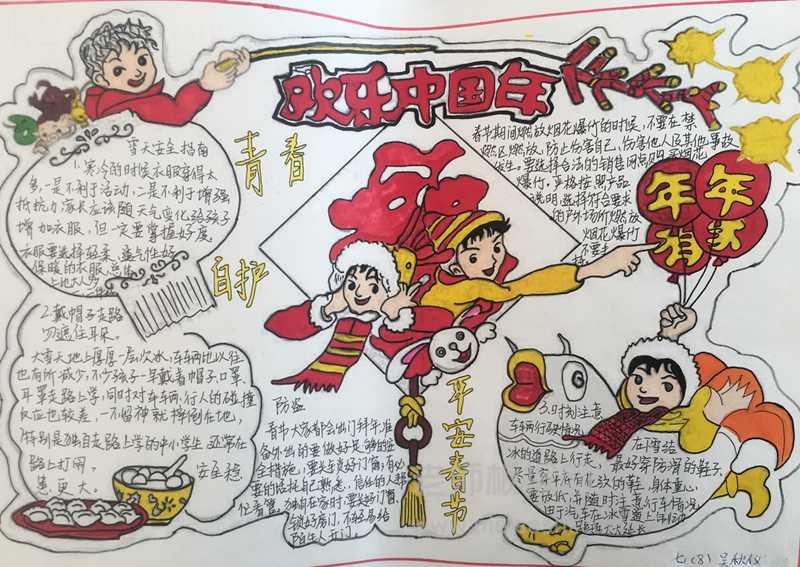 欢乐中国年
青春
自护
平安春节
年年有
雪天安全指南
1.寒冷的时候衣服穿得太
多,一是不利于活动,二是不利于增强
抵抗力。家长应该随天气变化给孩子
增加衣服,但一定要掌握好度
衣服要选择轻柔、透气性好
保暖的衣服
2.戴帽子走路
勿遮住耳朵。
大雪天地上厚厚一层
也有所减少,不少孩子一早戴着帽子、口罩、
耳罩走路上学,同时对车辆、行人的碰撞
反应也较差,一不留神就摔倒在地,
特别是独自走路上学的中小学生
路上打闹,
春节期间燃放烟花爆竹的时候,不要在禁
燃区燃放,防止伤害自己,伤害他人及其他事故
发生。要选择合法的销售网点购买烟花
爆竹,严格按照产品
说明,选择符合要求
的户外场所燃放
烟花爆竹
不要
防盗
春节大家都会出门拜年,准
备外出的要做好足够的安
全措施,要关好门窗,
锁好房门,不轻易给
陌生人开门。
3.时刻注意
车辆行驶情况
在
冰的道路上行走,最好穿防滑的鞋子,
身体重心
要放低,并随时注意行车情况
由于汽车在冰雪道上
七(8)吴秋仪